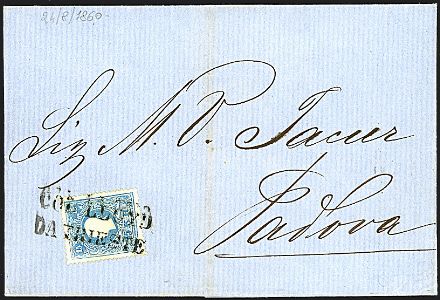 24/8/1860
Sig M. V. Jacur
Padova
COL LLOYD
DA TRIESTE